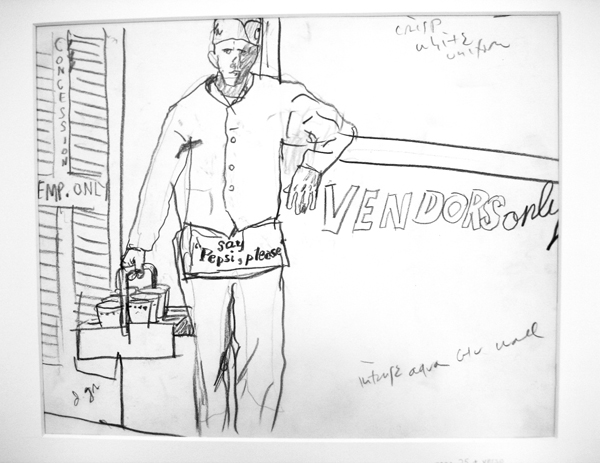 crisp
white
uniform
CONCESSION
EMP. ONLY
VENDORS only
"say
Pepsi, please
intense aqua wall